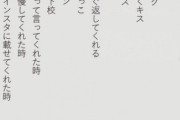 ク
てキス
ス
く返してくれる
っこ
ン
ト校
って言ってくれた時
優してくれた時
インスタに載せてくれた時